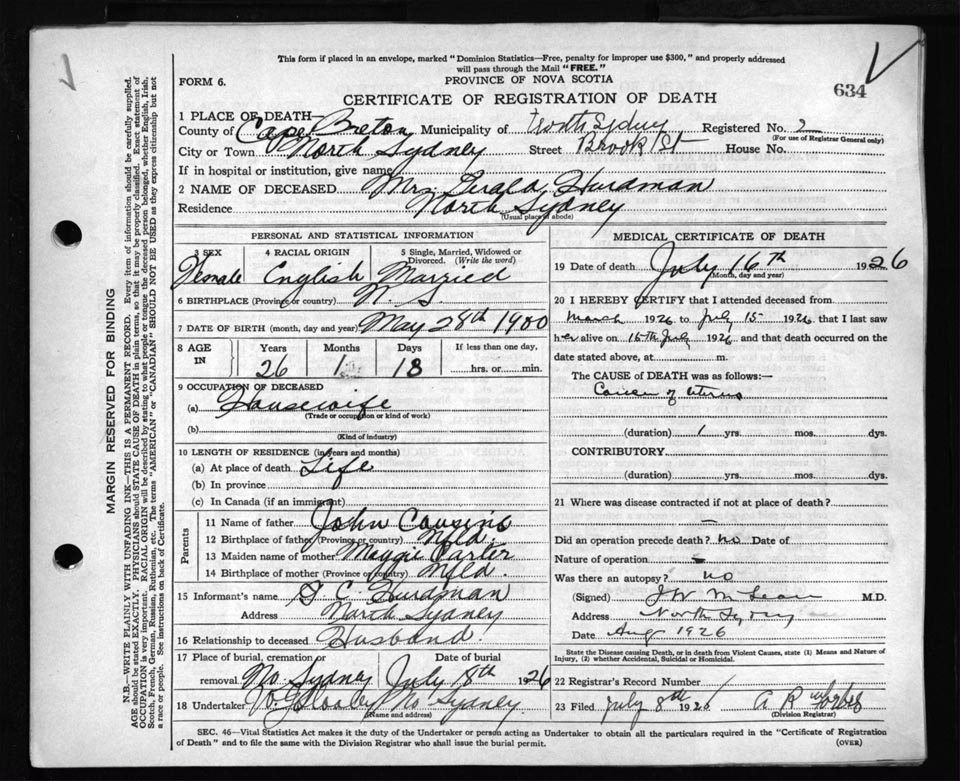 This form if placed in an envelope, marked "Dominion Statistics—Free, penalty for improper use $300," and properly addressed
will pass through the Mail "FREE."
FORM 6.
PROVINCE OF NOVA SCOTIA
634
CERTIFICATE OF REGISTRATION OF DEATH
1 PLACE OF DEATH—
County of Cape Breton Municipality of North Sydney Registered No. 2
(For use of Registrar General only)
City or Town North Sydney Street Brook St House No.
If in hospital or institution, give name
2 NAME OF DECEASED Mrs Gerald Hurdman
Residence North Sydney
(Usual place of abode)
PERSONAL AND STATISTICAL INFORMATION
3 SEX 4 RACIAL ORIGIN 5 Single, Married, Widowed or Divorced. (Write the word)
Female English Married
6 BIRTHPLACE (Province or country) N. S.
7 DATE OF BIRTH (month, day and year) May 28th 1900
8 AGE IN Years Months Days If less than one day,
26 1 18 hrs. or min.
9 OCCUPATION OF DECEASED
(a) Housewife
(Trade or occupation or kind of work)
(b)
(Kind of industry)
10 LENGTH OF RESIDENCE (in years and months)
(a) At place of death Life
(b) In province
(c) In Canada (if an immigrant)
Parents
11 Name of father John Cousins
12 Birthplace of father (Province or country) Nfld.
13 Maiden name of mother Maggie Carter
14 Birthplace of mother (Province or country) Nfld.
15 Informant's name G. C. Hurdman
Address North Sydney
16 Relationship to deceased Husband
17 Place of burial, cremation or removal Date of burial
No. Sydney July 18th 1926
18 Undertaker No Sydney
(Name and address)
MEDICAL CERTIFICATE OF DEATH
19 Date of death July 16th 1926
(Month, day and year)
20 I HEREBY CERTIFY that I attended deceased from
March 1926 to July 15 1926, that I last saw
her alive on 15th July 1926 and that death occurred on the
date stated above, at m.
The CAUSE of DEATH was as follows:—
Cancer of Uterus
(duration) 1 yrs. mos. dys.
CONTRIBUTORY
(duration) yrs. mos. dys.
21 Where was disease contracted if not at place of death?
Did an operation precede death? no Date of
Nature of operation
Was there an autopsy? no
(Signed) McLean M.D.
Address North Sydney
Date Aug 1926
State the Disease causing Death, or in death from Violent Causes, state (1) Means and Nature of
Injury, (2) whether Accidental, Suicidal or Homicidal.
22 Registrar's Record Number
23 Filed July 1926 A R Forbes
(Division Registrar)
SEC. 46—Vital Statistics Act makes it the duty of the Undertaker or person acting as Undertaker to obtain all the particulars required in the "Certificate of Registration
of Death" and to file the same with the Division Registrar who shall issue the burial permit.
(OVER)
MARGIN RESERVED FOR BINDING
N.B.—WRITE PLAINLY WITH UNFADING INK—THIS IS A PERMANENT RECORD. Every item of information should be carefully supplied.
AGE should be stated EXACTLY. PHYSICIANS should STATE CAUSE OF DEATH in plain terms, so that it may be properly classified. Exact statement of
OCCUPATION is very important. RACIAL ORIGIN will be described by stating to what people or tongue the deceased person belonged, whether English, Irish,
Scotch, French, German, Russian, Ruthenian, etc. The terms "AMERICAN" or "CANADIAN" SHOULD NOT BE USED as they express citizenship but not
a race or people. See instructions on back of Certificate.